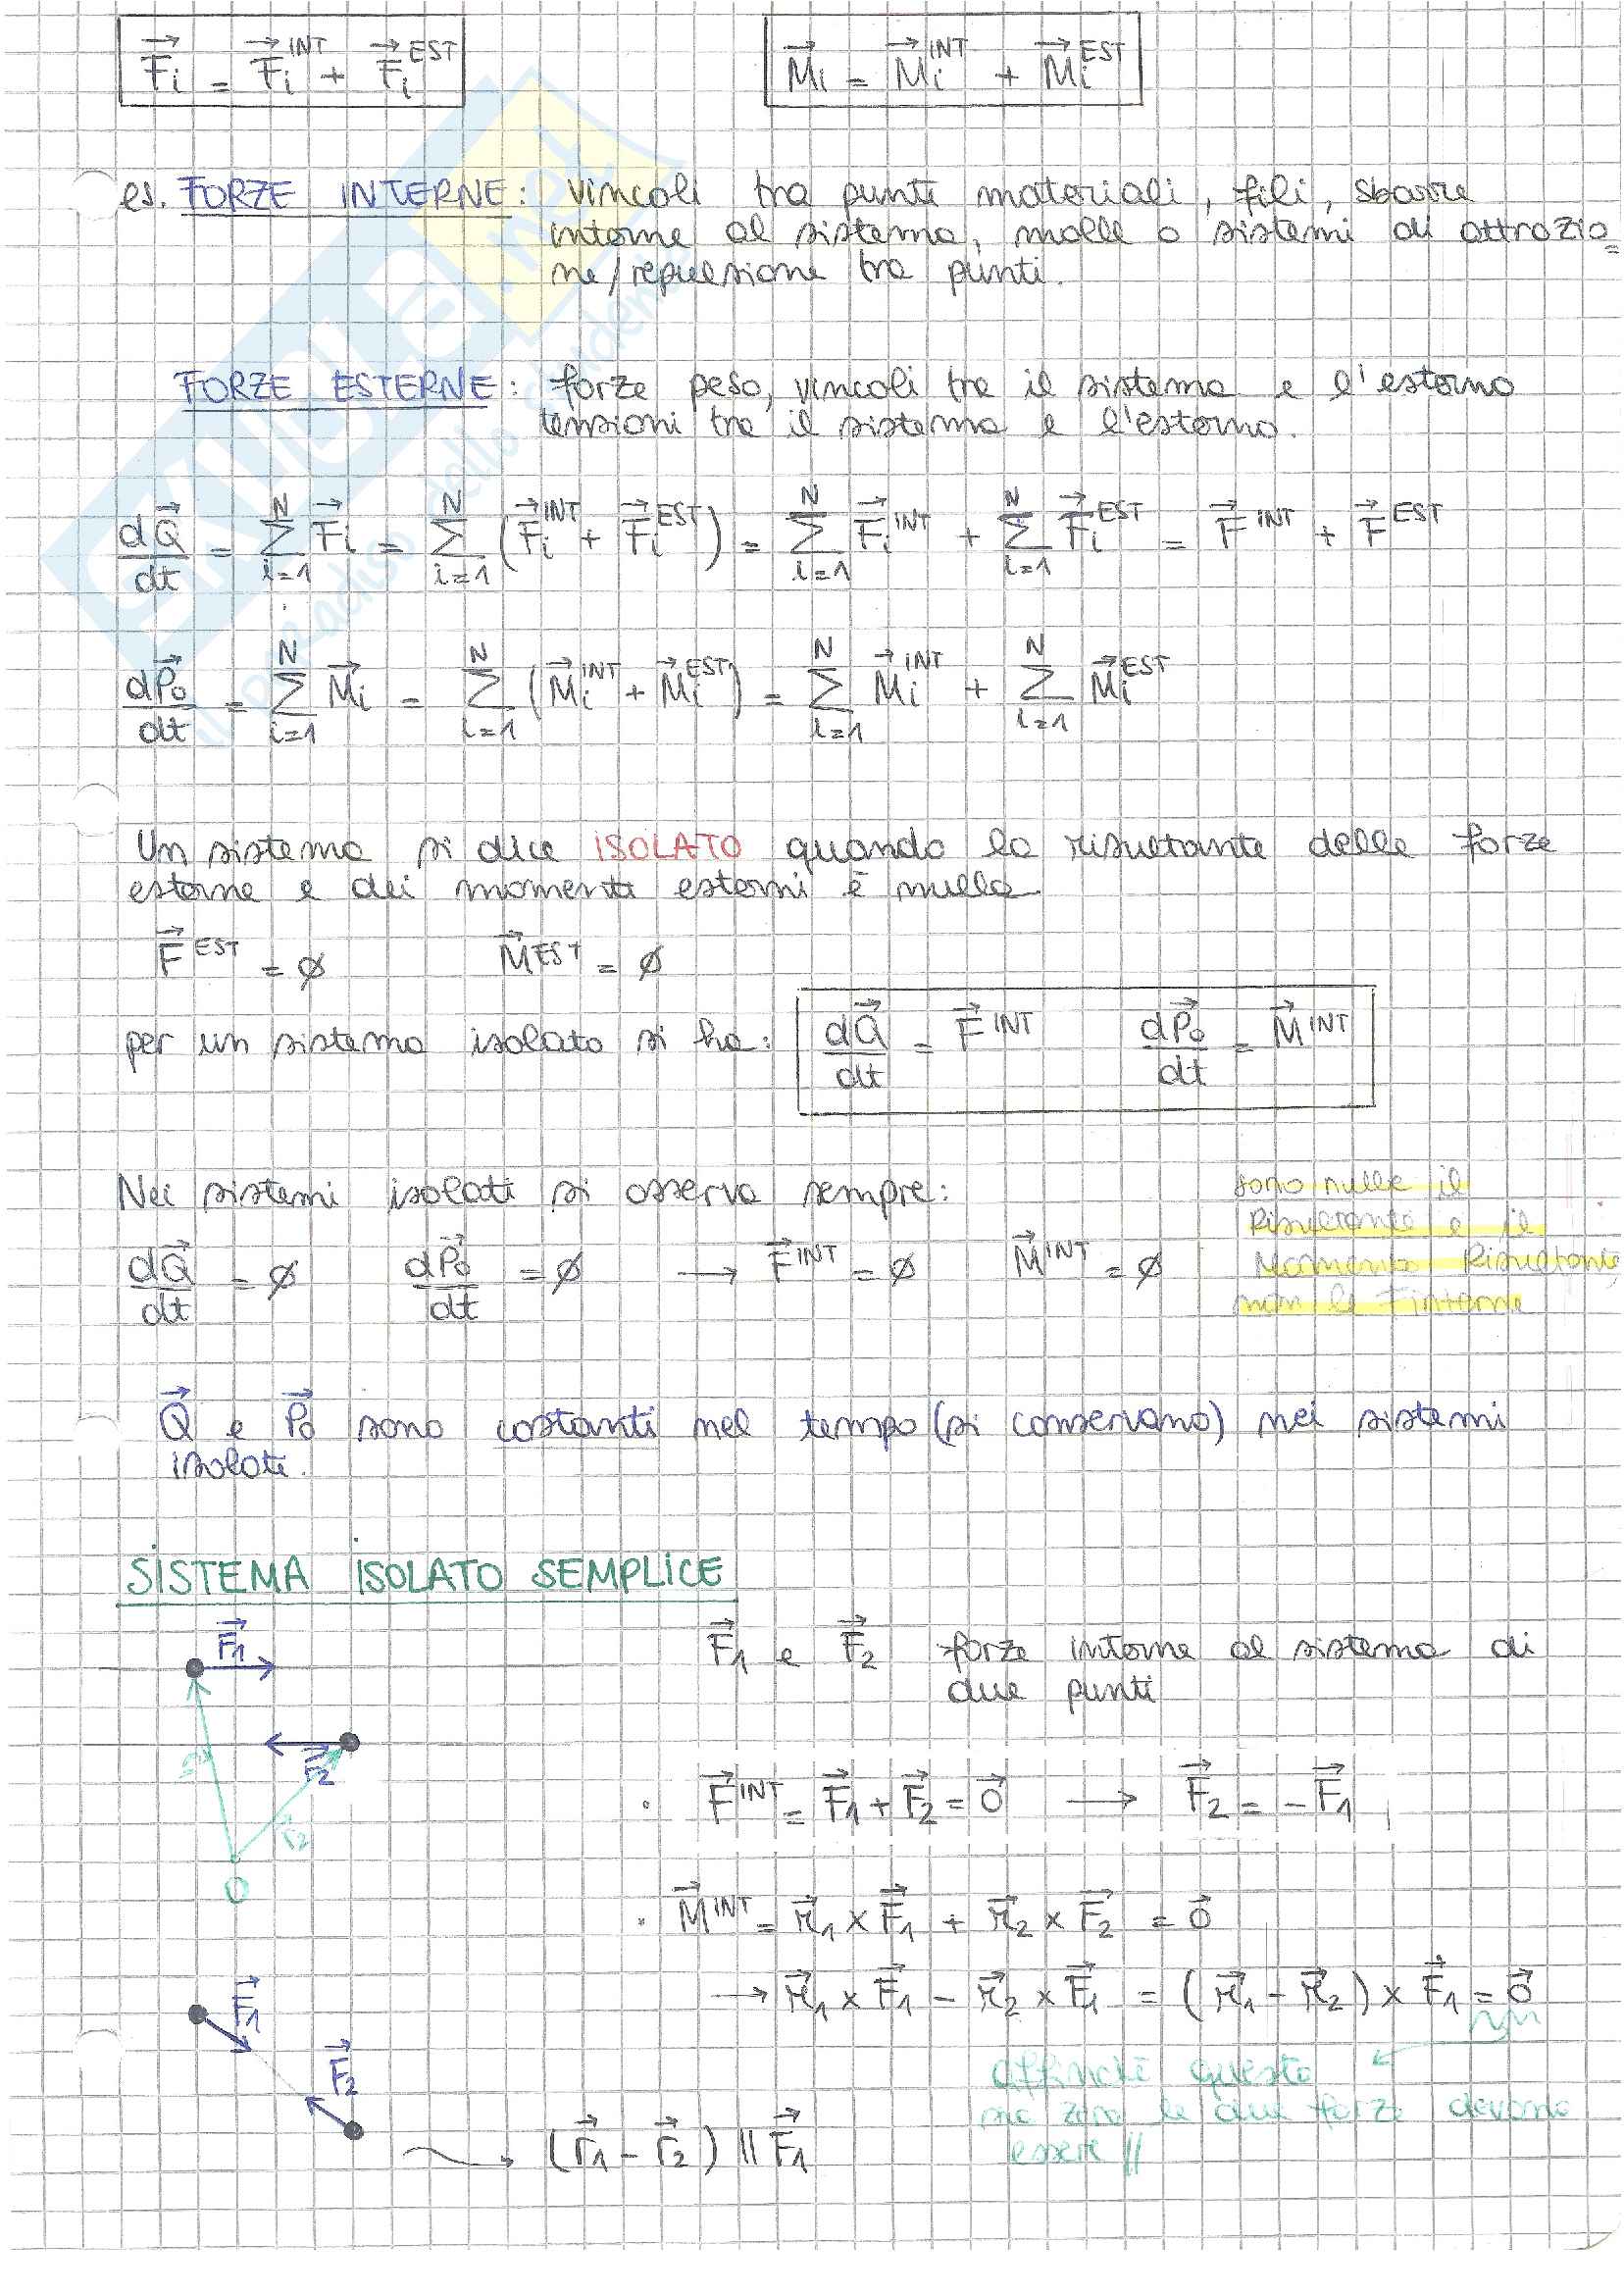 F⃗i = F⃗i^INT + F⃗i^EST    M⃗i = M⃗i^INT + M⃗i^EST
es. FORZE INTERNE: vincoli tra punti materiali, fili, sbarre
interne al sistema, molle o sistemi di attrazio=
ne/repulsione tra punti.
FORZE ESTERNE: forze peso, vincoli tra il sistema e l'esterno
tensioni tra il sistema e l'esterno.
dQ⃗/dt = Σ_{i=1}^{N} F⃗i = Σ_{i=1}^{N} (F⃗i^INT + F⃗i^EST) = Σ_{i=1}^{N} F⃗i^INT + Σ_{i=1}^{N} F⃗i^EST = F⃗^INT + F⃗^EST
dP⃗o/dt = Σ_{i=1}^{N} M⃗i = Σ_{i=1}^{N} (M⃗i^INT + M⃗i^EST) = Σ_{i=1}^{N} M⃗i^INT + Σ_{i=1}^{N} M⃗i^EST
Un sistema si dice ISOLATO quando la risultante delle forze
esterne e dei momenti esterni è nulla
F⃗^EST = ∅    M⃗^EST = ∅
per un sistema isolato si ha: dQ⃗/dt = F⃗^INT    dP⃗o/dt = M⃗^INT
Nei sistemi isolati si osserva sempre:
dQ⃗/dt = ∅    dP⃗o/dt = ∅ → F⃗^INT = ∅    M⃗^INT = ∅
sono nulle il
Risultante e il
Momento Risultante,
non le F interne
Q⃗ e P⃗o sono costanti nel tempo (si conservano) nei sistemi
isolati.
SISTEMA ISOLATO SEMPLICE
F⃗1
F⃗2
r⃗2
O
F⃗1 e F⃗2 forze interne al sistema di
due punti
· F⃗^INT = F⃗1 + F⃗2 = 0⃗ → F⃗2 = -F⃗1
· M⃗^INT = r⃗1 × F⃗1 + r⃗2 × F⃗2 = 0⃗
→ r⃗1 × F⃗1 - r⃗2 × F⃗1 = (r⃗1 - r⃗2) × F⃗1 = 0⃗
F⃗1
F⃗2
affinchè questo
sia zero le due forze devono
essere //
→ (r⃗1 - r⃗2) || F⃗1